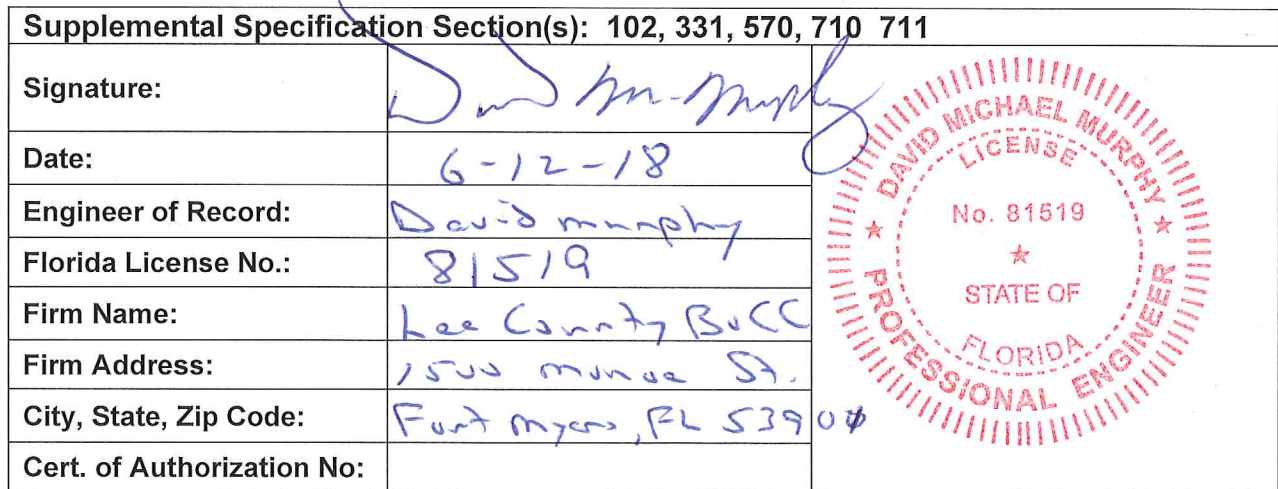 Supplemental Specification Section(s): 102, 331, 570, 710 711
Signature: David M. Murphy
Date: 6-12-18
Engineer of Record: David murphy
Florida License No.: 81519
Firm Name: Lee County BoCC
Firm Address: 1500 monroe St.
City, State, Zip Code: Fort Myers, FL
Cert. of Authorization No:
DAVID MICHAEL MURPHY
LICENSE
No. 81519
STATE OF
FLORIDA
PROFESSIONAL ENGINEER